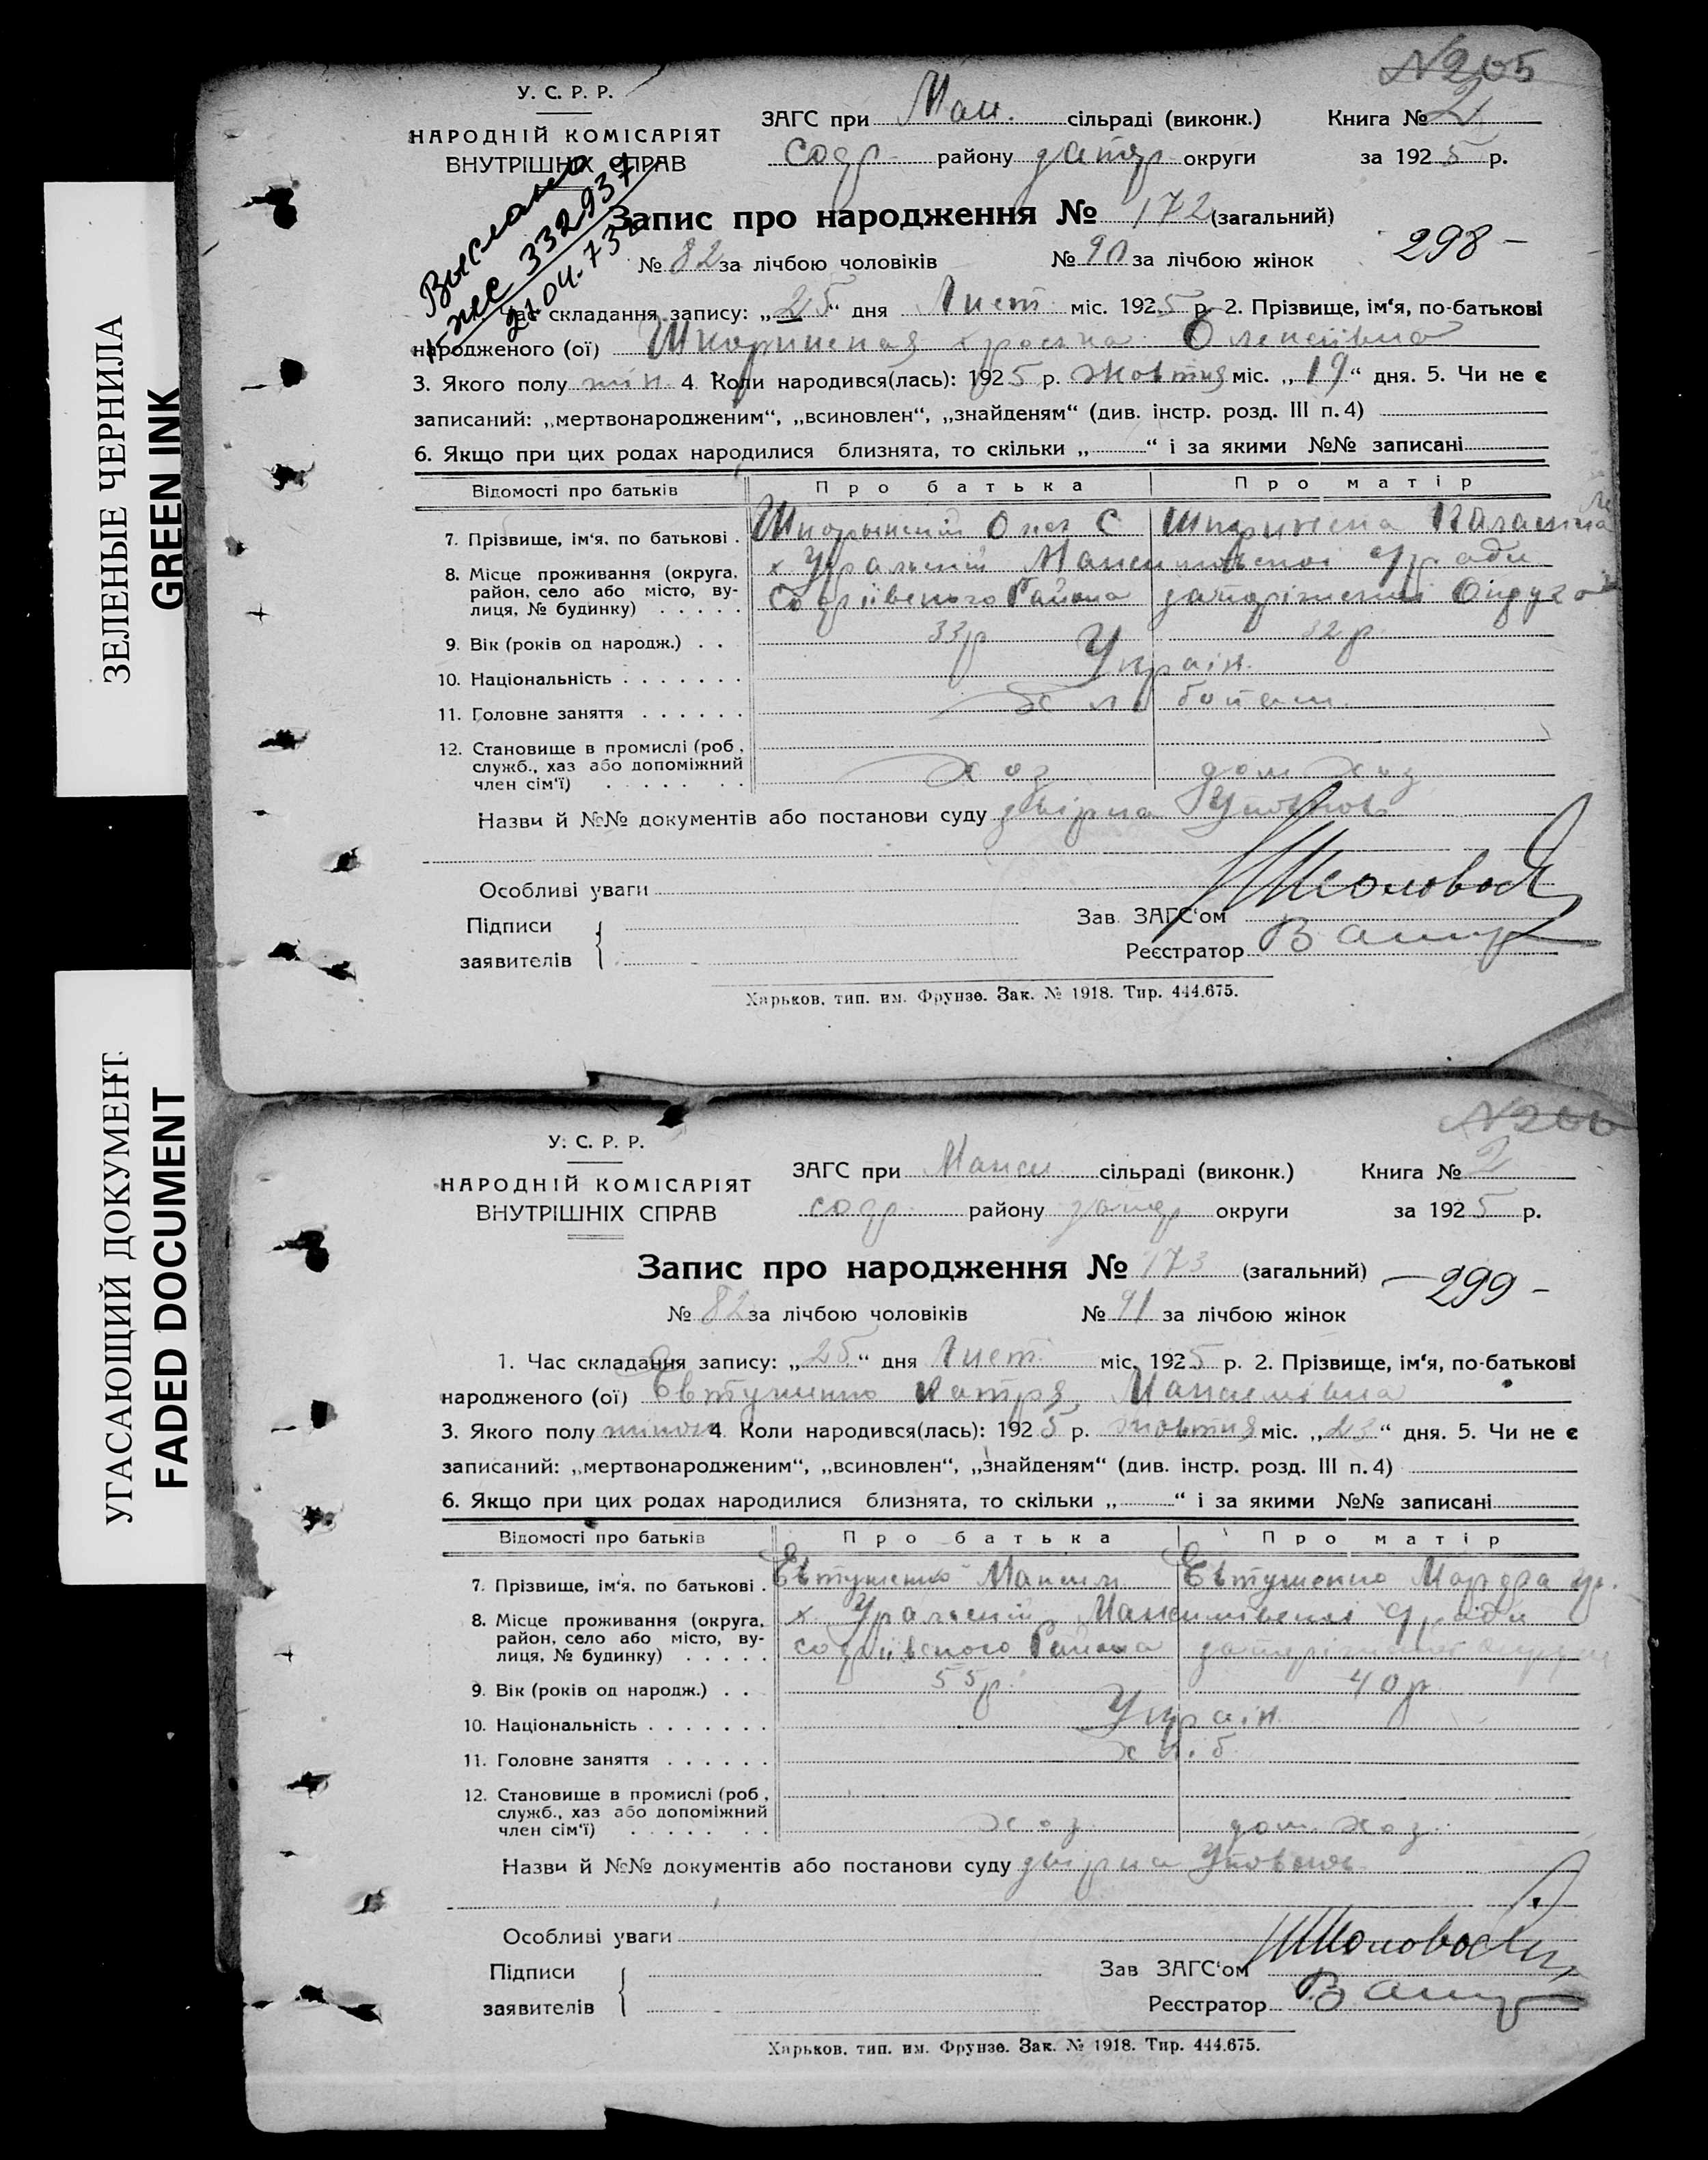 ЗЕЛЕНЫЕ ЧЕРНИЛА
GREEN INK
УГАСАЮЩИЙ ДОКУМЕНТ
FADED DOCUMENT
№205
У. С. Р. Р.
НАРОДНІЙ КОМІСАРІЯТ
ВНУТРІШНІХ СПРАВ
ЗАГС при Мак. сільраді (виконк.) Книга № 2
софр району запор округи за 1925 р.
Выслано
332937
21.04.73
Запис про народження № 172 (загальний)
№ 82 за лічбою чоловіків № 90 за лічбою жінок
298 –
Час складання запису: „25“ дня Лист міс. 1925 р. 2. Прізвище, ім‘я, по-батькові
народженого (ої) Олексіївна
3. Якого полу жін 4. Коли народився(лась): 1925 р. жовтня міс. „19“ дня. 5. Чи не є
записаний: „мертвонародженим“, „всиновлен“, „знайденям“ (див. інстр. розд. III п. 4)
6. Якщо при цих родах народилися близнята, то скільки „ “ і за якими №№ записані
Відомості про батьків Про батька Про матір
7. Прізвище, ім‘я, по батькові .
8. Місце проживання (округа, х Уральский
район, село або місто, ву- Софіівського Района запоріжської Округи
лиця, № будинку) . . . . .
9. Вік (років од народж.) . . 33р 32 р.
10. Національність . . . . . . . Україн.
11. Головне заняття . . . . . .
12. Становище в промислі (роб.,
служб., хаз або допоміжний
член сім‘ї) . . . . . . . хоз дом хоз
Назви й №№ документів або постанови суду двірна
Особливі уваги
Підписи
заявителів
Зав. ЗАГС‘ом
Реєстратор
Харьков, тип. им. Фрунзе. Зак. № 1918. Тир. 444.675.
№206
У. С. Р. Р.
НАРОДНІЙ КОМІСАРІЯТ
ВНУТРІШНІХ СПРАВ
ЗАГС при Макси сільраді (виконк.) Книга № 2
софр. району запор округи за 1925 р.
Запис про народження № 173 (загальний)
№ 82 за лічбою чоловіків № 91 за лічбою жінок
– 299 –
1. Час складання запису: „25“ дня Лист міс. 1925 р. 2. Прізвище, ім‘я, по-батькові
народженого (ої) Євтушенко Катря Максимівна
3. Якого полу жіноч 4. Коли народився(лась): 1925 р. жовтня міс. „23“ дня. 5. Чи не є
записаний: „мертвонародженим“, „всиновлен“, „знайденям“ (див. інстр. розд. III п. 4)
6. Якщо при цих родах народилися близнята, то скільки „ “ і за якими №№ записані
Відомості про батьків Про батька Про матір
7. Прізвище, ім‘я, по батькові . Євтушенко Максим Євтушенко
8. Місце проживання (округа, х. Уральский Максимівської
район, село або місто, ву- софіівського Района запоріжської округи
лиця, № будинку) . . . . .
9. Вік (років од народж.) . . 55р. 40р
10. Національність . . . . . . . Україн.
11. Головне заняття . . . . . . хл. б.
12. Становище в промислі (роб.,
служб., хаз або допоміжний
член сім‘ї) . . . . . . . хоз. дом. хоз.
Назви й №№ документів або постанови суду двірна
Особливі уваги
Підписи
заявителів
Зав ЗАГС‘ом
Реєстратор
Харьков, тип. им. Фрунзе. Зак. № 1918. Тир. 444.675.